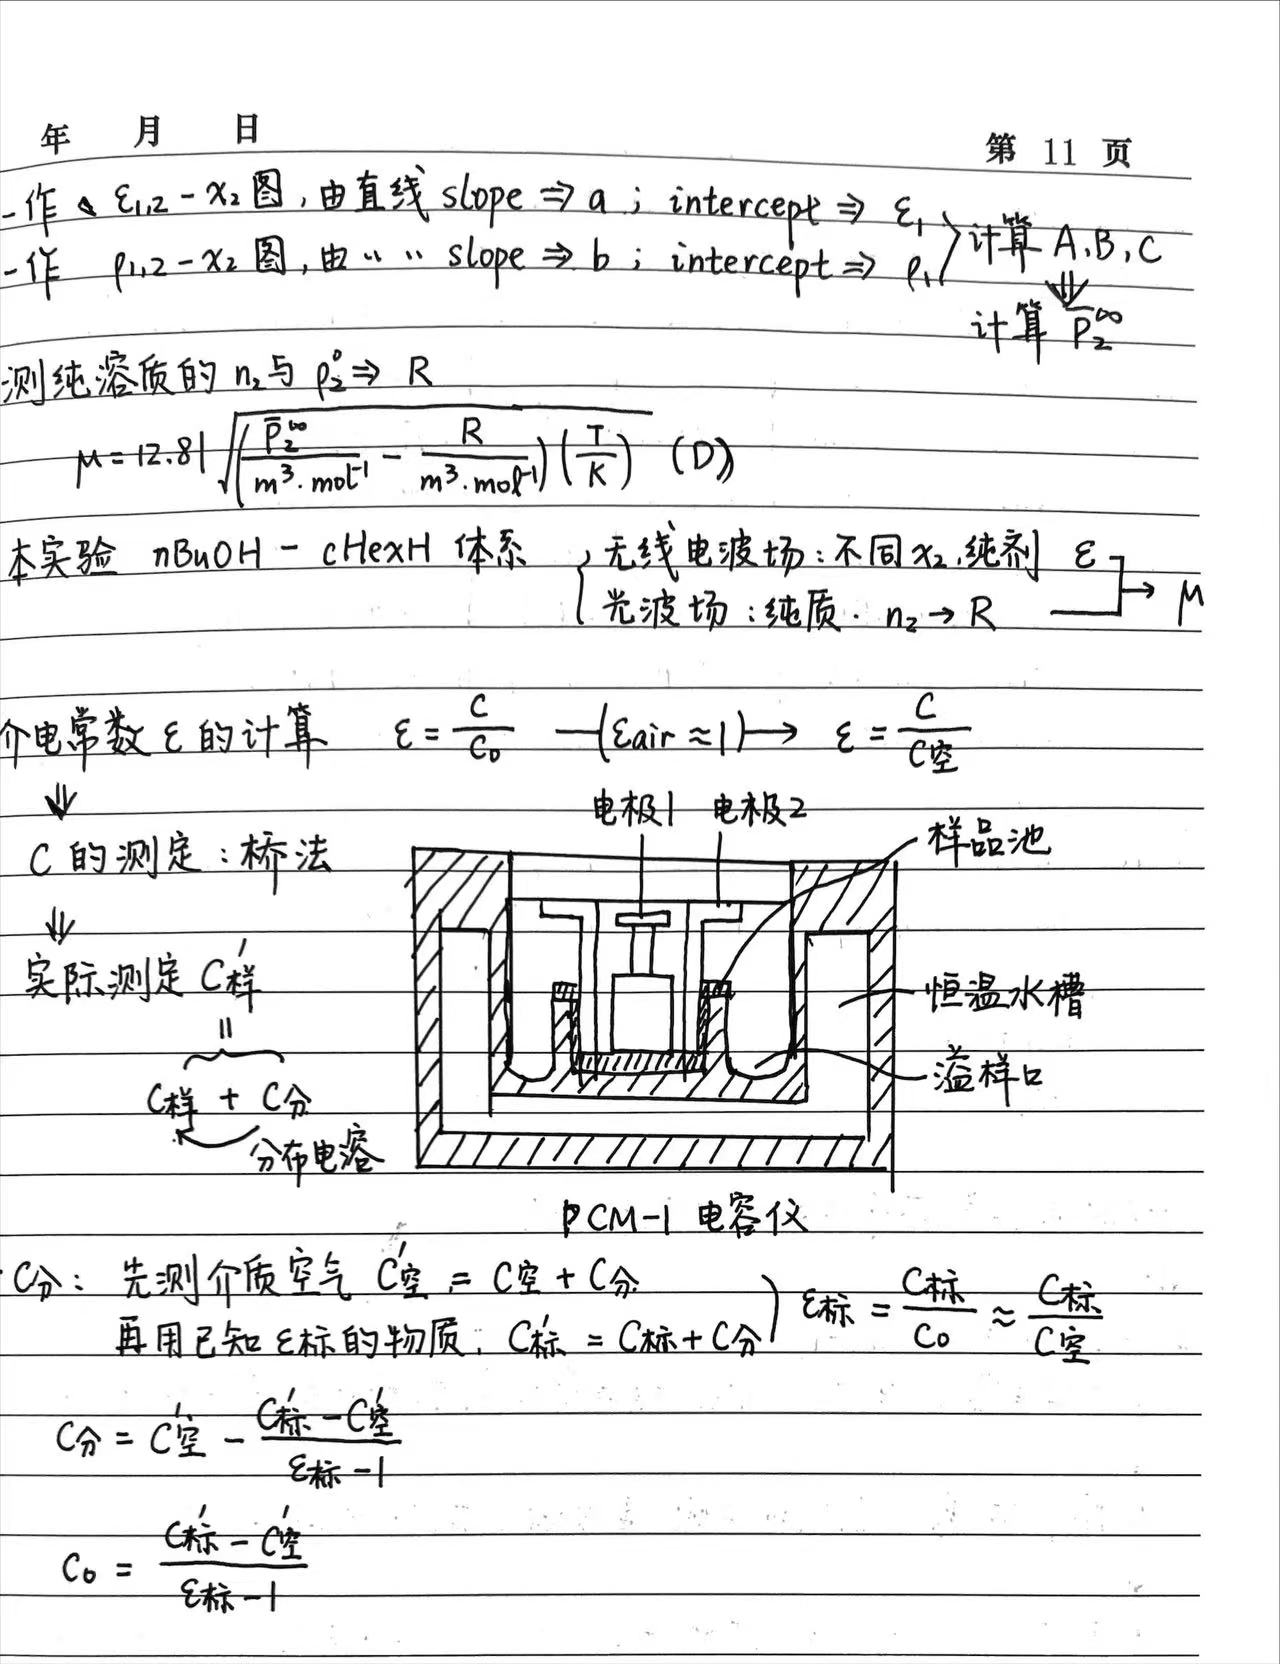 年 月 日
第 11 页
-作 ε₁,₂-x₂图,由直线 slope ⇒ a ; intercept ⇒ ε₁
-作 ρ₁,₂-x₂图,由〃 〃 slope ⇒ b ; intercept ⇒ ρ₁
计算 A,B,C
⇓
计算 P̄₂^∞
测纯溶质的 n₂与 ρ₂° ⇒ R
μ = 12.81 √((P̄₂^∞/m³·mol⁻¹ - R/m³·mol⁻¹)(T/K)) (D)
本实验 nBuOH - cHexH 体系 { 无线电波场:不同x₂,纯剂 ε
光波场:纯质. n₂ → R → μ
介电常数 ε 的计算 ε = C/C₀ —(εair ≈ 1)→ ε = C/C空
⇓
电极1 电极2
样品池
C 的测定:桥法
⇓
实际测定 C'样
恒温水槽
=
溢样口
C样 + C分
分布电容
PCM-1 电容仪
C分: 先测介质空气 C'空 = C空 + C分
再用已知 ε标的物质. C'标 = C标 + C分
ε标 = C标/C₀ ≈ C标/C空
C分 = C'空 - (C'标 - C'空)/(ε标 - 1)
C₀ = (C'标 - C'空)/(ε标 - 1)